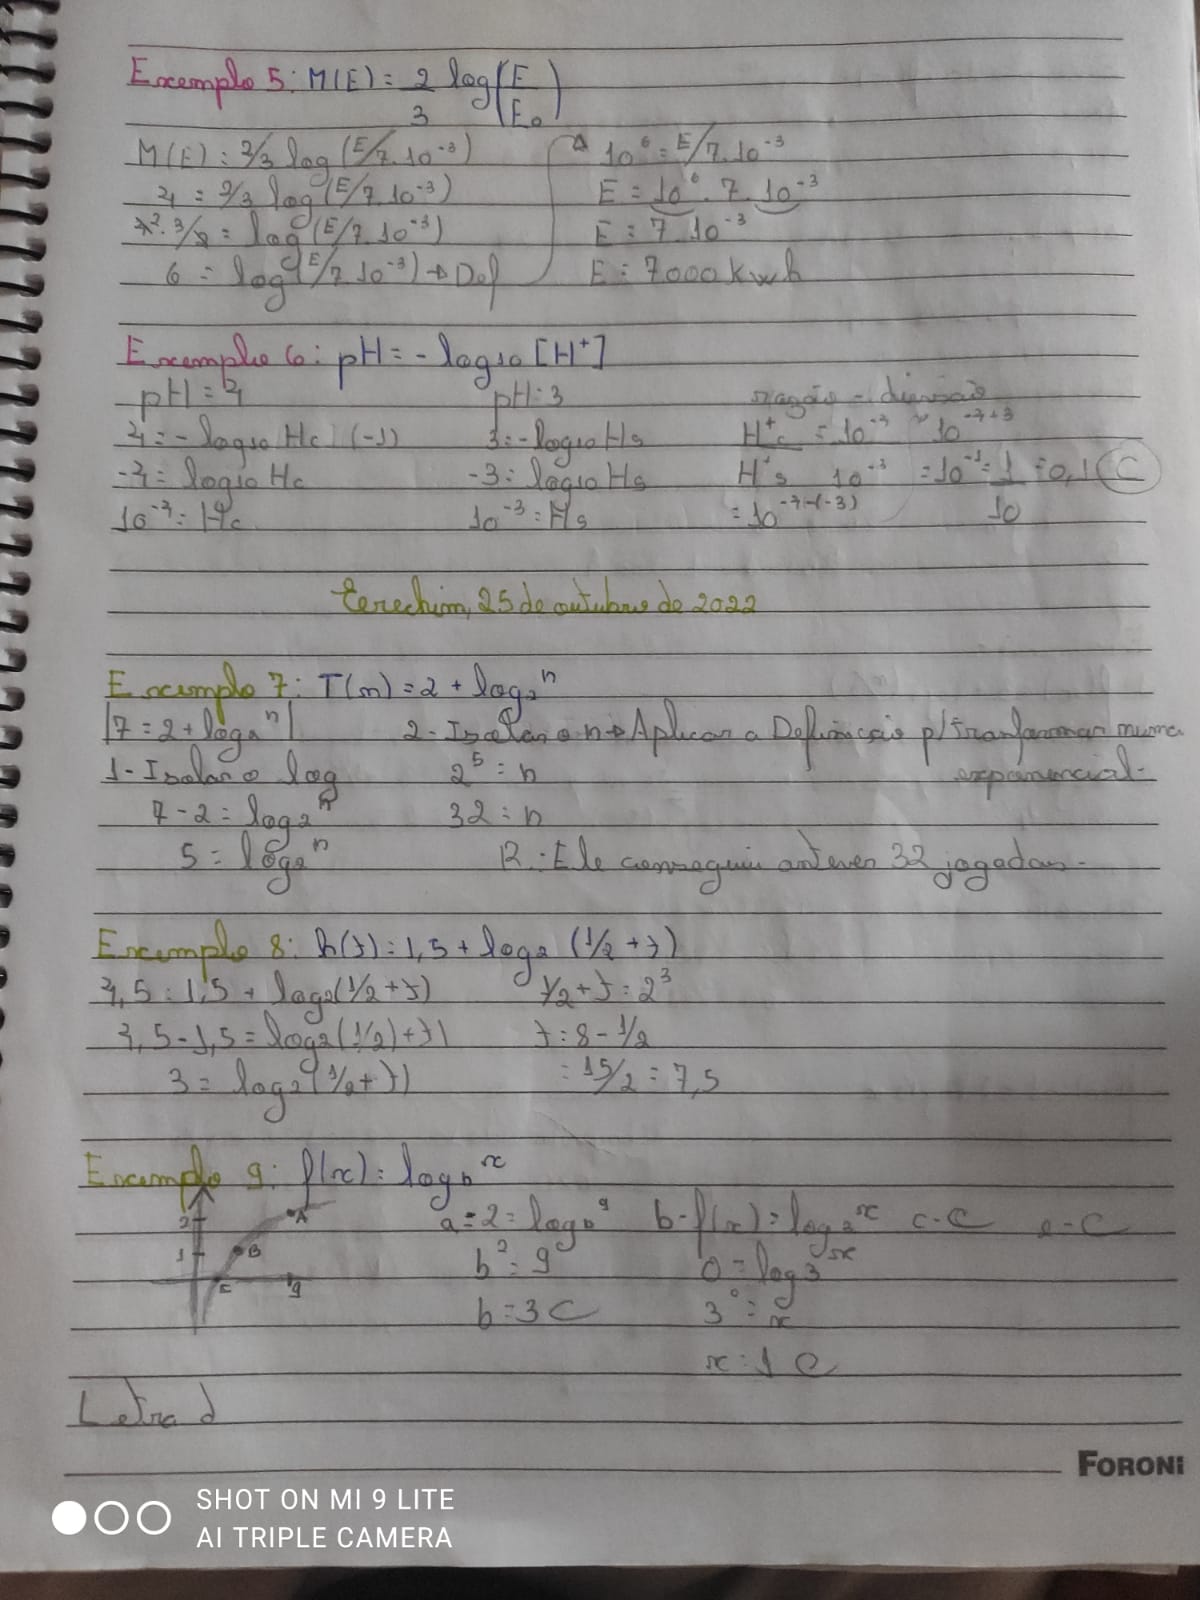 Exemplo 5: M(E) = 2/3 log(E/E₀)
M(E) = 2/3 log(E/7.10⁻³)
4 = 2/3 log(E/7.10⁻³)
4². 3/2 = log(E/7.10⁻³)
6 = log(E/7.10⁻³) → Def
10⁶ = E/7.10⁻³
E = 10⁶ . 7 . 10⁻³
E = 7.10⁻³
E = 7000 kwh
Exemplo 6: pH = - log10 [H⁺]
pH = 4
4 = - log10 Hc (-1)
-4 = log10 Hc
10⁻⁴ = Hc
pH = 3
3 = - log10 Hs
-3 = log10 Hs
10⁻³ = Hs
razão - divisão
H⁺c = 10⁻⁴ 10⁻⁴⁺³
H⁺s 10⁻³ = 10⁻¹ = 1/10 = 0,1 C
= 10⁻⁴⁻⁽⁻³⁾
Erechim, 25 de outubro de 2022
Exemplo 7: T(n) = 2 + log₂ⁿ
|7 = 2 + log₂ⁿ|
1- Isolar o log
7 - 2 = log₂ⁿ
5 = log₂ⁿ
2- Isolar o n → Aplicar a Definição p/ tranformar numa
exponencial.
2⁵ = n
32 = n
R.: Ele conseguiu antever 32 jogadas.
Exemplo 8: h(t) = 1,5 + log₂ (1/2 + t)
4,5 = 1,5 + log₂(1/2 + t)
4,5 - 1,5 = log₂(1/2) + t)
3 = log₂(1/2 + t)
1/2 + t = 2³
t = 8 - 1/2
= 15/2 = 7,5
Exemplo 9: f(x) = log_b ˣ
2
1
A
B
C
9
a = 2 = log_b ⁹
b² = 9
b = 3 C
b - f(x) = log₃ˣ
0 = log₃ˣ
3⁰ = x
x = 1 C
c - C
e - C
Letra d
FORONI
SHOT ON MI 9 LITE
AI TRIPLE CAMERA